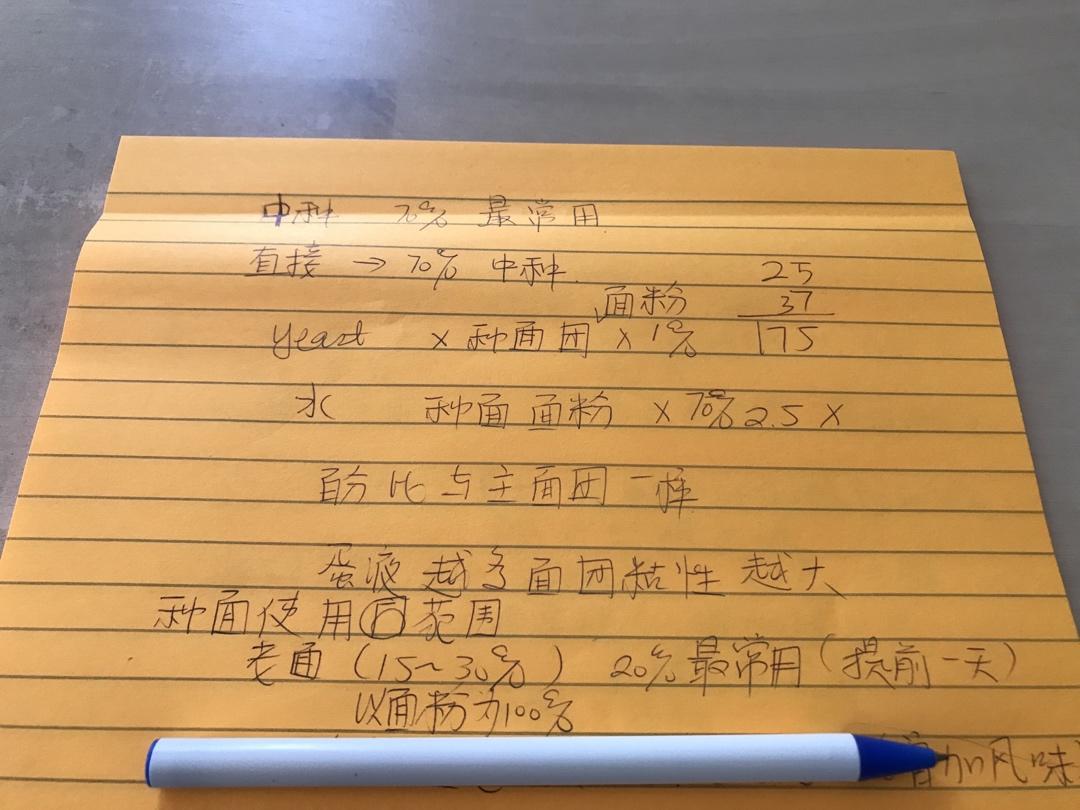 中种 70% 最常用
直接 → 70% 中种
25
面粉 37
yeast × 种面团 × 1% 175
水 种面面粉 × 70% 2.5 ×
百分比与主面团一样
蛋液越多面团粘性越大
种面使用 范围
老面 (15~30%) 20% 最常用 (提前一天)
以面粉为100%
增加风味